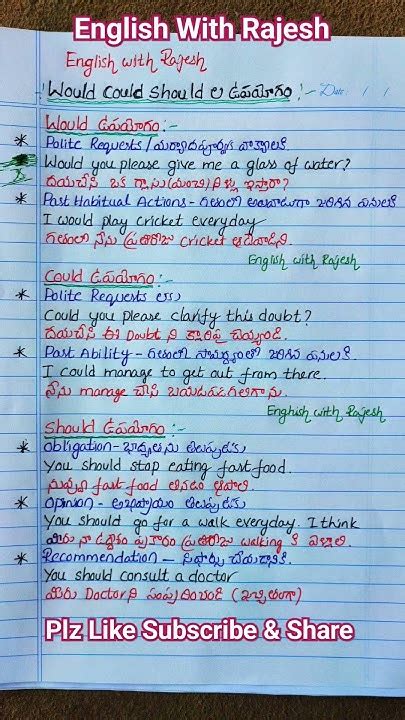 English With Rajesh
English with Rajesh
Would Could Should ల ఉపయోగం :- Date: / /
Would ఉపయోగం :-
* Polite Requests / మర్యాదపూర్వక వాక్యాలకి
Would you please give me a glass of water?
దయచేసి ఒక గ్లాసు (మంచి) నీళ్లు ఇస్తారా?
* Past Habitual Actions - గతంలో అలవాటుగా జరిగిన పనులకి
I would play cricket everyday
గతంలో నేను ప్రతిరోజు cricket ఆడేవాడిని.
English with Rajesh
Could ఉపయోగం :-
* Polite Requests లకు
Could you please clarify this doubt?
దయచేసి ఈ Doubt ని క్లారిఫై చెయ్యండి.
* Past Ability - గతంలో సామర్థ్యంతో జరిగిన పనులకి.
I could manage to get out from there.
నేను manage చేసి బయటపడగలిగాను.
English with Rajesh
Should ఉపయోగం :-
* Obligation - బాధ్యతను తెలుపుటకు
You should stop eating fast food.
నువ్వు fast food తినడం ఆపాలి.
* Opinion - అభిప్రాయం తెలుపుటకు
You should go for a walk everyday. I think
మీరు నా ఉద్దేశం ప్రకారం ప్రతిరోజు walking కి వెళ్లాలి
* Recommendation - సిఫార్సు చేయడానికి.
You should consult a doctor
మీరు Doctor ని సంప్రదించండి (ఖచ్చితంగా)
Plz Like Subscribe & Share